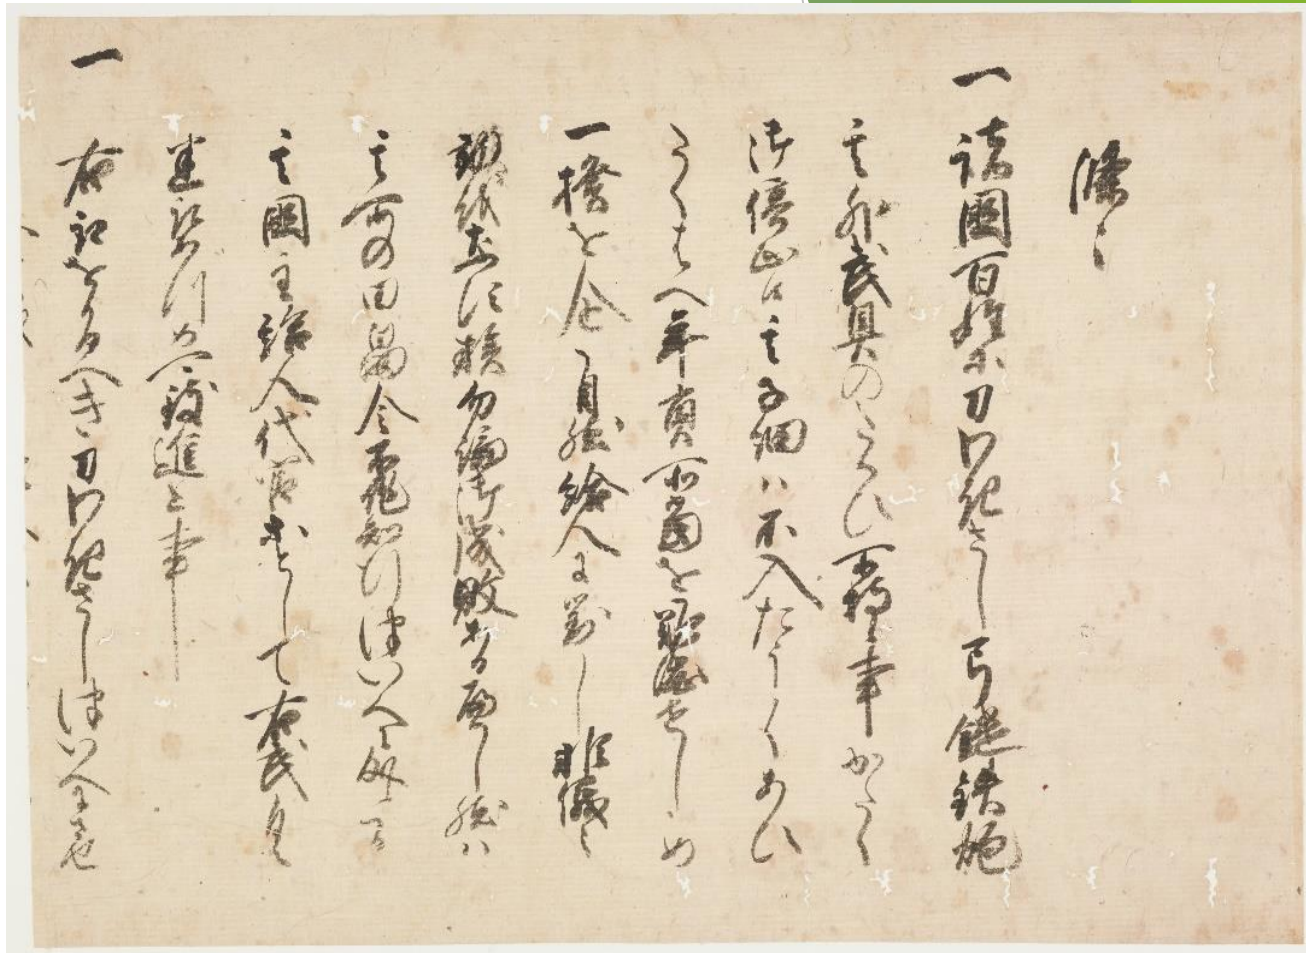 條々
一 諸國百姓等刀わきさし弓鑓鉄炮
其外武具のたくひ所持候事かたく
御停止候其子細ハ不入たうくあひ
たくはへ年貢所當を難澁せしめ
一揆を企自然給人に對し非儀之
族勿論御成敗あるへし然ハ
其所の田畠令不作知行ついへに成候間
其國主給人代官として右武具
悉取あつめ可致進上事
一 右取をかるへき刀わきさしついへにさせ